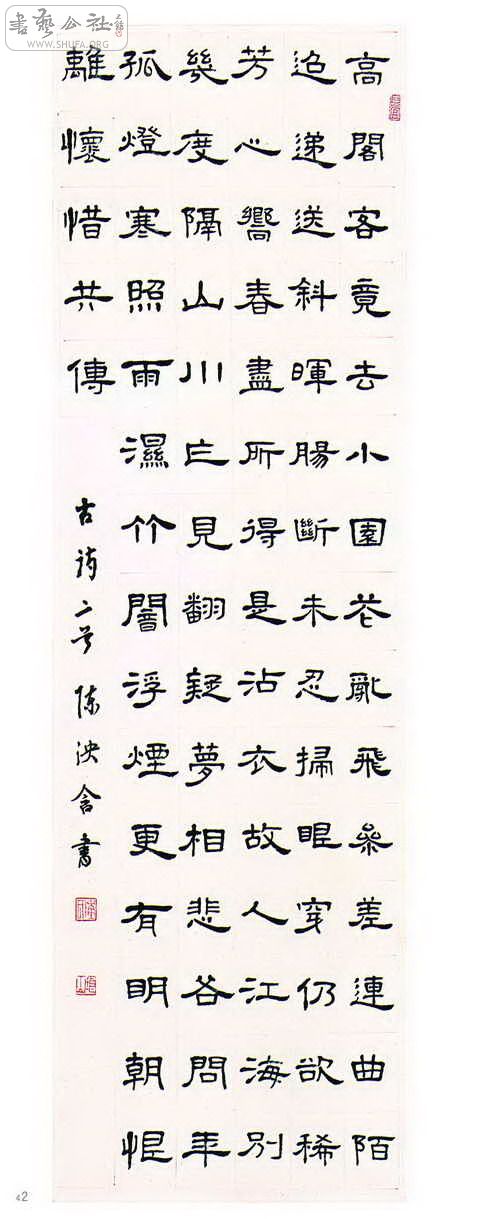 書藝公社
WWW.SHUFA.ORG
高閣客竟去小園花亂飛參差連曲陌
迢遞送斜暉腸斷未忍掃眼穿仍欲稀
芳心嚮春盡所得是沾衣故人江海別
幾度隔山川乍見翻疑夢相悲各問年
孤燈寒照雨濕竹闇浮煙更有明朝恨
離懷惜共傳
古詩二首 陳泱含書
42